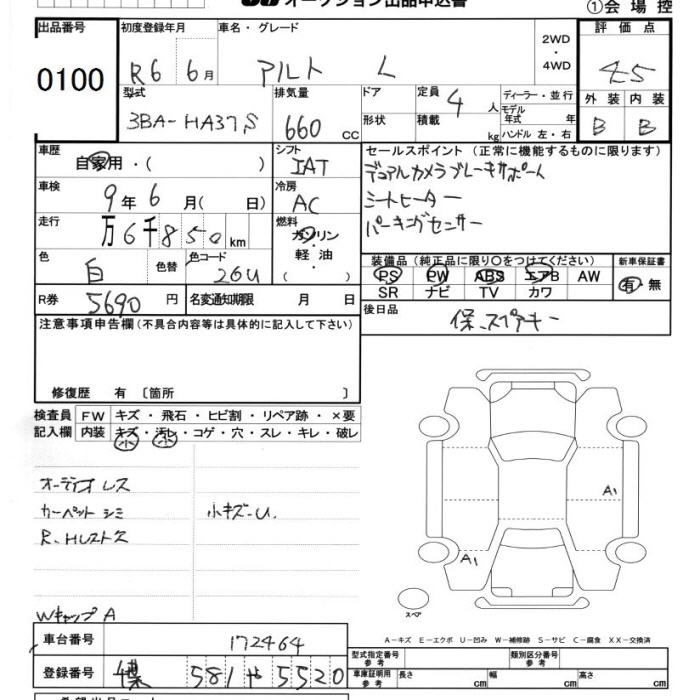 オークション出品申込書
①会場控
出品番号
0100
初度登録年月
R6 6月
車名・グレード
アルト L
2WD
・
4WD
評価点
4.5
外装 内装
B B
型式
3BA-HA37S
排気量
660 cc
ドア
形状
定員 4 人
積載 kg
ディーラー・並行
モデル年式 年
ハンドル 左・右
車歴
自家用・( )
シフト
IAT
セールスポイント (正常に機能するものに限ります)
デュアルカメラブレーキサポート
シートヒーター
パーキングセンサー
車検
9年 6月( 日)
冷房
AC
走行
万6千850km
燃料
ガソリン
軽油
( ・ )
色
白
色替
色コード
26U
装備品(純正品に限り〇をつけてください)
PS PW ABS エアB AW
SR ナビ TV カワ
新車保証書
有・無
R券 5690 円
名変通知期限 月 日
後日品
保、スペアキー
注意事項申告欄(不具合内容等は具体的に記入して下さい)
修復歴 有 〔箇所 〕
検査員記入欄
FW キズ・飛石・ヒビ割・リペア跡・×要
内装 キズ・汚レ・コゲ・穴・スレ・キレ・破レ
小 小
オーディオレス
カーペットシミ
小キズ-U.
A1
A1
スペア
WキャップA
A-キズ E-エクボ U-凹み W-補修跡 S-サビ C-腐食 XX-交換済
車台番号
172464
型式指定番号
参考
類別区分番号
参考
登録番号
581 や 5520
車庫証明用
参考
長さ cm
幅 cm
高さ cm